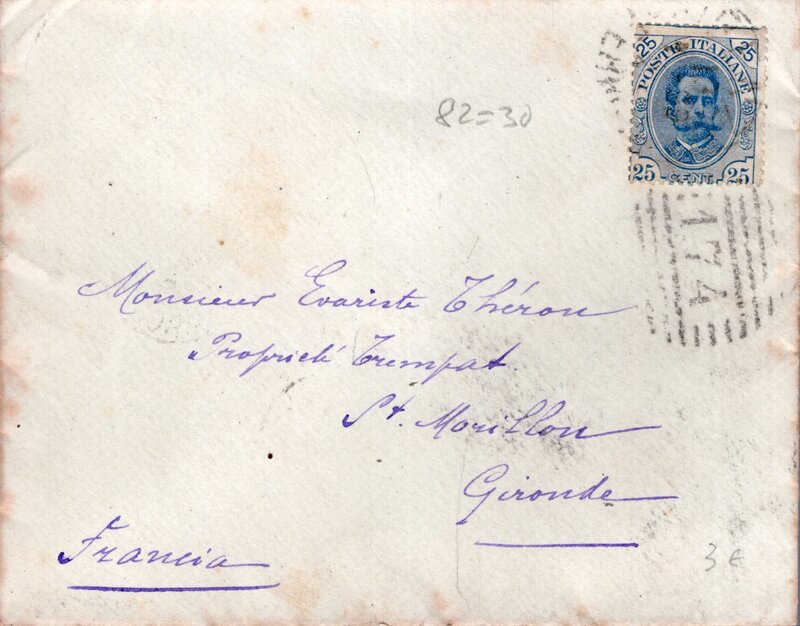 25 POSTE ITALIANE 25
25 CENT. 25
82=30
174
Monsieur Evariste Théron
Propriété Trempat
St. Morillon
Gironde
Francia
3 €